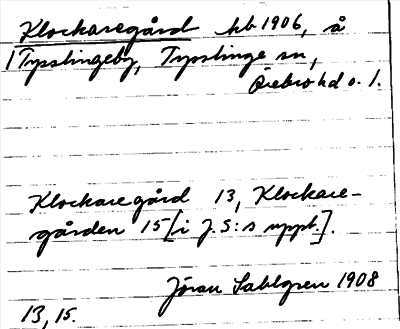 Klockaregård kb 1906, å
Tysslingeby, Tysslinge sn,
Örebro hd o. l.
Klockaregård 13, Klockare-
gården 15 [i J. S:s uppt.].
Jöran Sahlgren 1908
13, 15.